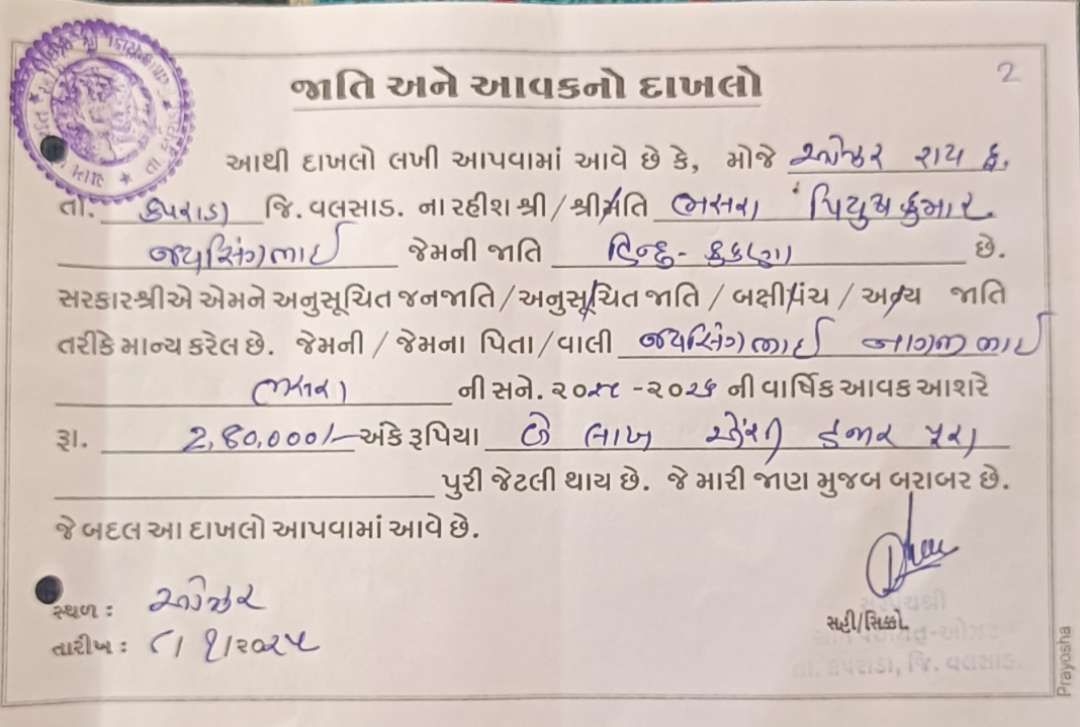 જાતિ અને આવકનો દાખલો
2
આથી દાખલો લખી આપવામાં આવે છે કે, મોજે ઓઝર રાય ફ.
તા. કપરાડા જિ. વલસાડ. ના રહીશ શ્રી / શ્રીમતિ ભસરા પિયુષકુમાર
જયસિંગભાઈ જેમની જાતિ હિન્દુ - કુકણા છે.
સરકારશ્રીએ એમને અનુસૂચિત જનજાતિ / અનુસૂચિત જાતિ / બક્ષીપંચ / અન્ય જાતિ
તરીકે માન્ય કરેલ છે. જેમની / જેમના પિતા / વાલી જયસિંગભાઈ નાગજીભાઈ
ભસરા ની સને. ૨૦૨૫ - ૨૦૨૬ ની વાર્ષિક આવક આશરે
રૂા. 2,80,000/- અંકે રૂપિયા બે લાખ એંસી હજાર પુરા
પુરી જેટલી થાય છે. જે મારી જાણ મુજબ બરાબર છે.
જે બદલ આ દાખલો આપવામાં આવે છે.
સ્થળ : ઓઝર
તારીખ : ૮/ ૧/૨૦૨૫
સહી/સિક્કો
તા. કપરાડા, જિ. વલસાડ.
Prayosha